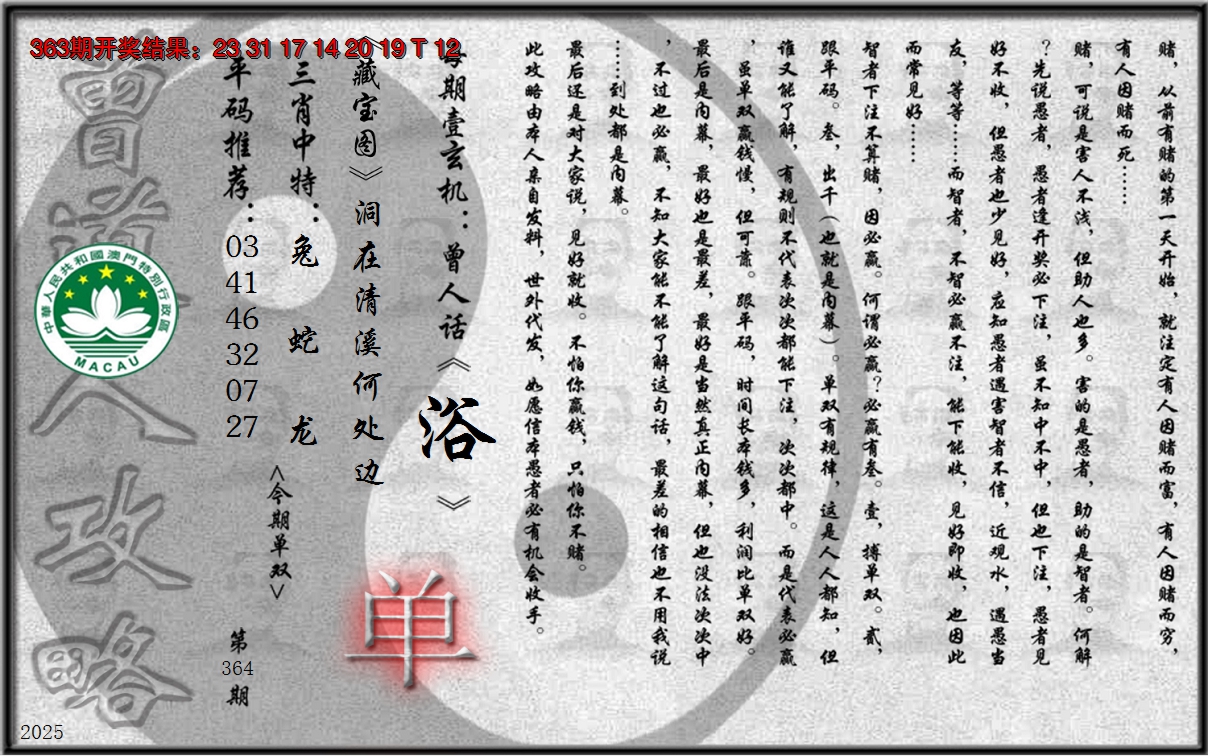 363期开奖结果：23 31 17 14 20 19 T 12
赌，从前有赌的第一天开始，就注定有人因赌而富，有人因赌而穷，
有人因赌而死……
赌，可说是害人不浅，但助人也多。害的是愚者，助的是智者。何解
？先说愚者，愚者逢开奖必下注，虽不知中不中，但也下注，愚者见
好不收，但愚者也少见好，应知愚者遇害智者不信，近观水，遇愚当
友，等等……而智者，不智必赢不注，能下能收，见好即收，也因此
而常见好……
智者下注不算赌，因必赢。何谓必赢？必赢有叁。壹，搏单双。贰，
跟平码。叁，出千（也就是内幕）。单双有规律，这是人人都知，但
谁又能了解，有规则不代表次次都能下注，次次都中。而是代表必赢
，虽单双赢钱慢，但可靠。跟平码，时间长本钱多，利润比单双好。
最后是内幕，最好也是最差，最好是当然真正内幕，但也没法次次中
，不过也必赢，不知大家能不能了解这句话，最差的相信也不用我说
……到处都是内幕。
最后还是对大家说，见好就收。不怕你赢钱，只怕你不赌。
此攻略由本人亲自发料，世外代发，如愿信本愚者必有机会收手。
每期壹玄机：曾人话《浴》
《藏宝图》洞在清溪何处边
单
三肖中特：兔 蛇 龙
<今期单双>
平码推荐：
03
41
46
32
07
27
第
364
期
曾道人攻略
中華人民共和國澳門特別行政區
MACAU
2025